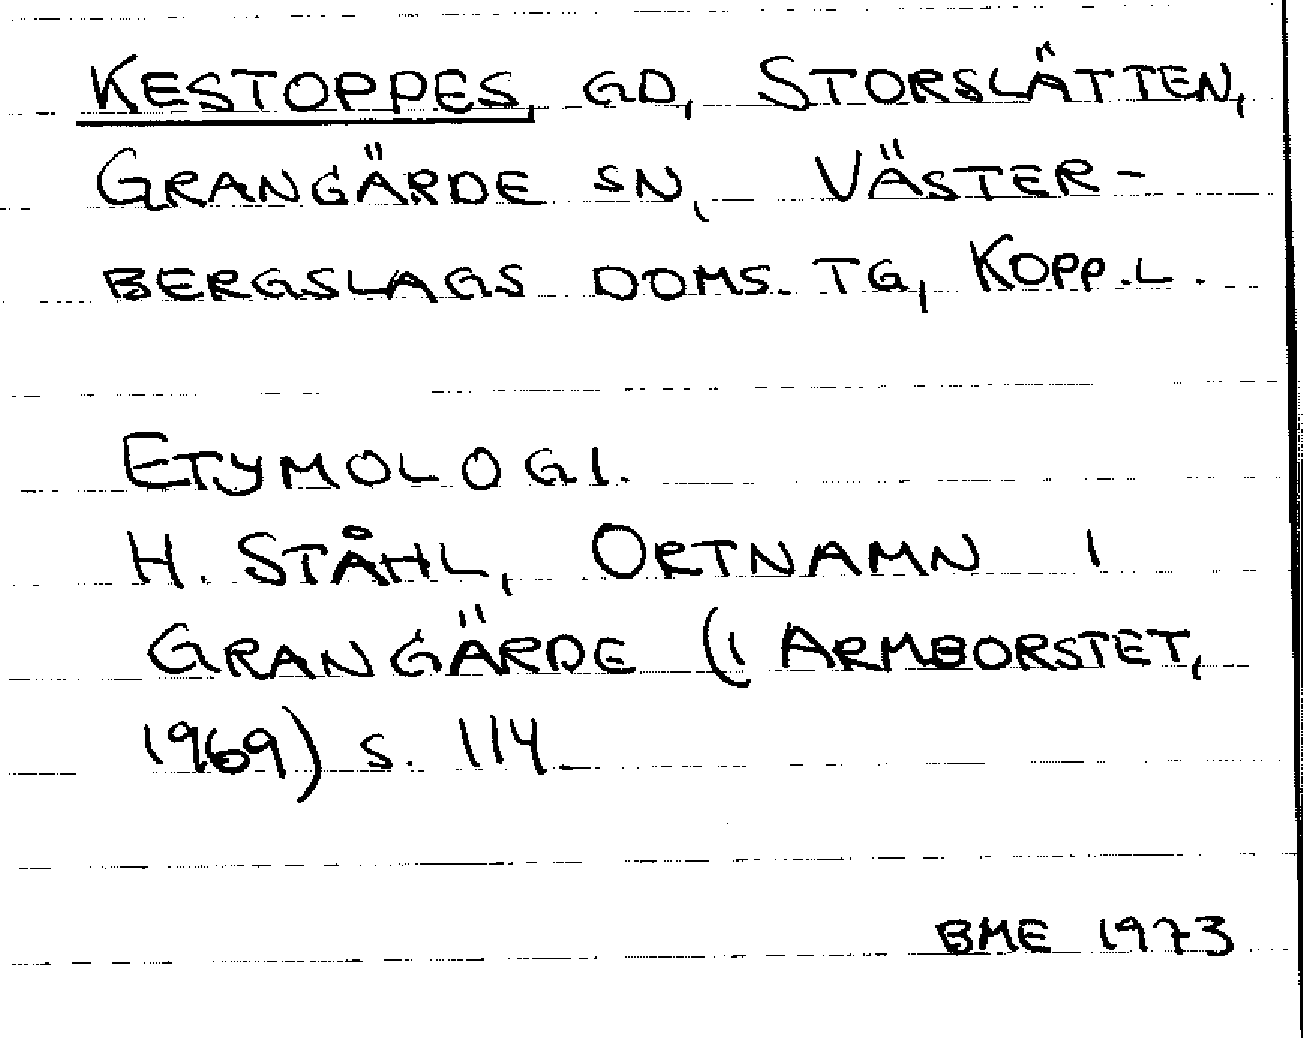 KESTOPPES, GD, STORSLÄTTEN,
GRANGÄRDE SN, VÄSTER-
BERGSLAGS DOMS. TG, KOPP.L.
ETYMOLOGI.
H. STÅHL, ORTNAMN I
GRANGÄRDE (I ARMBORSTET,
1969) S. 114
BME 1973